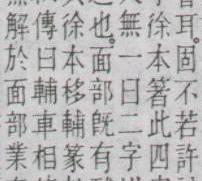 耳。固不若許
徐本箸此四
無一曰二字
也。面部旣有
徐本移輔篆
傳曰輔車相
解於面部業